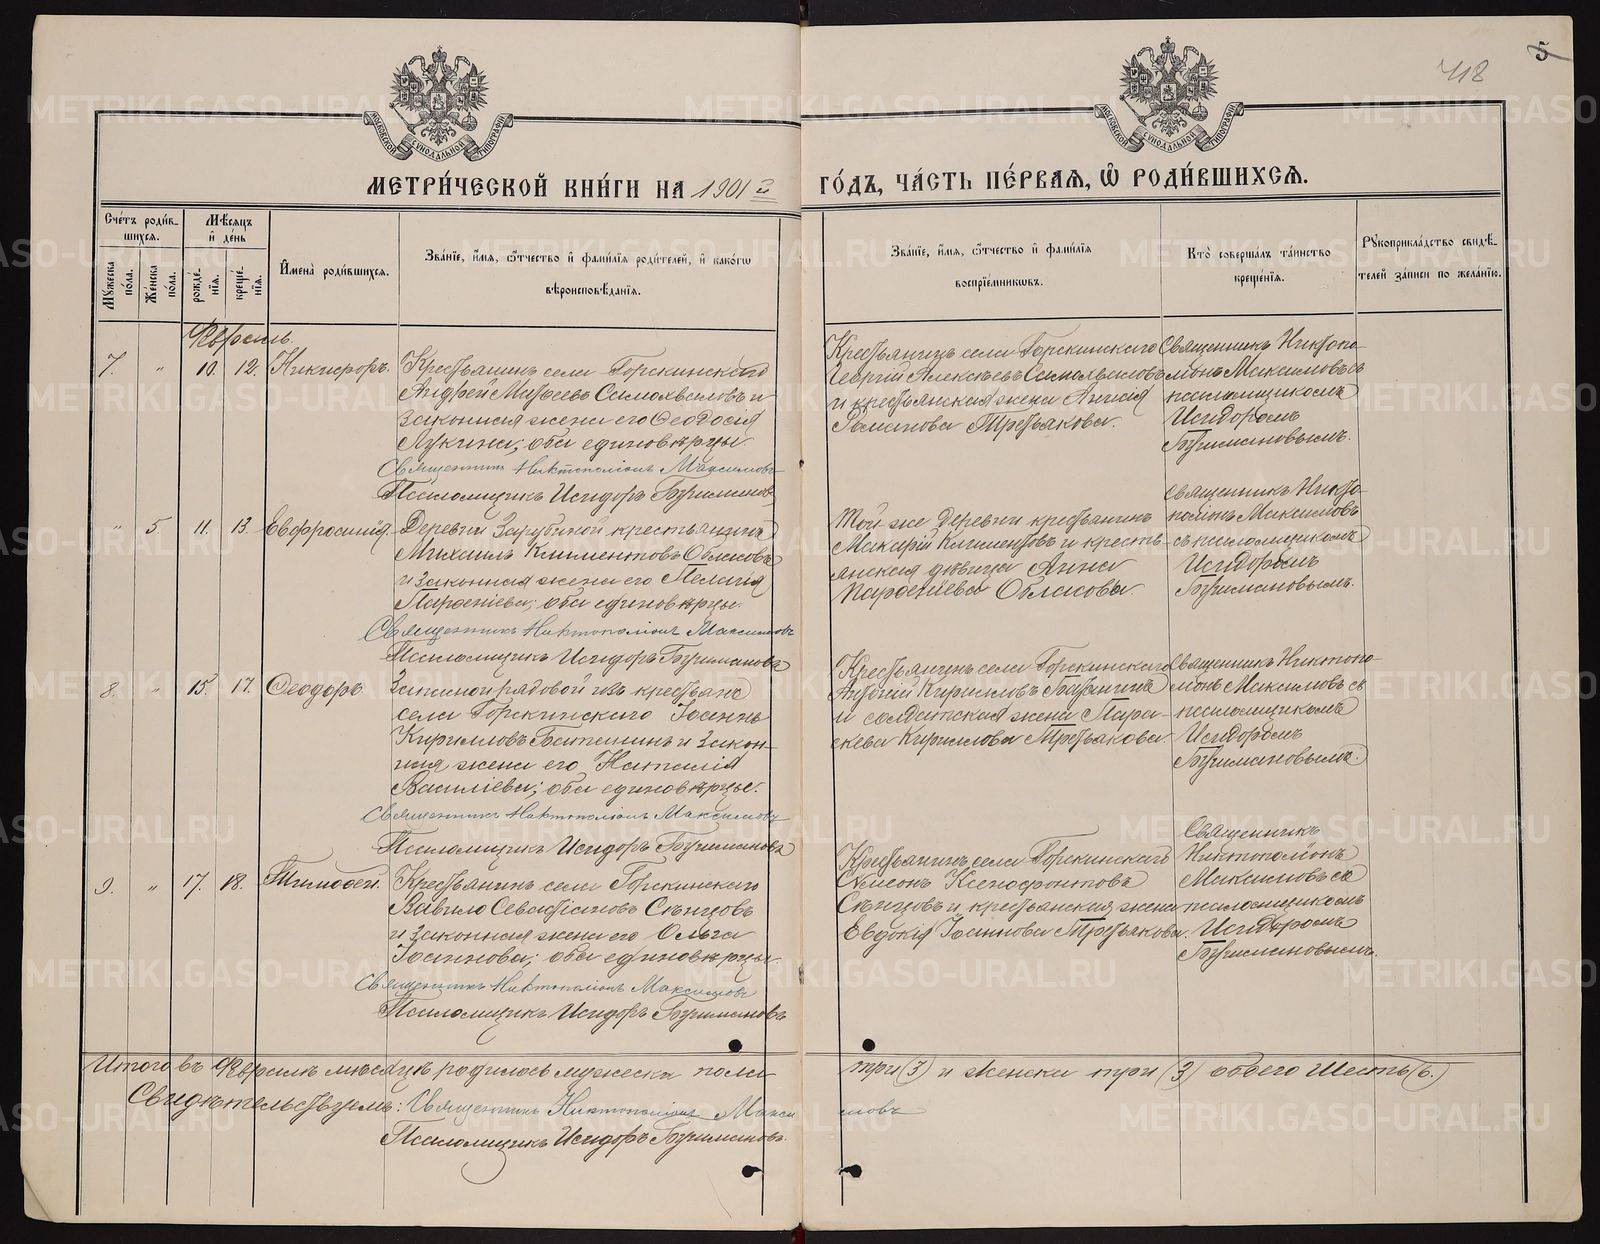 418
5
МОСКОВСКОЙ СѴНОДАЛЬНОЙ ТИПОГРАФІИ
МОСКОВСКОЙ СѴНОДАЛЬНОЙ ТИПОГРАФІИ
МЕТРИ́ЧЕСКОЙ КНИ́ГИ НА 1901 й
ГО́ДЪ, ЧА́СТЬ ПЕ́РВАѦ, Ѡ҆ РОДИ́ВШИХСѦ.
Сче́тъ роди́в-
шихсѧ.
Мꙋжеска по́ла.
Же́нска по́ла.
Мѣ́сѧцъ
и҆ де́нь
рожде́-
нїѧ.
креще́-
нїѧ.
И҆мена̀ роди́вшихсѧ.
Зва́нїе, и҆́мѧ, ѻ҆́тчество и҆ фами́лїѧ роди́телей, и҆ како́гѡ
вѣроисповѣ́данїѧ.
Зва́нїе, и҆́мѧ, ѻ҆́тчество и҆ фами́лїѧ
воспрїе́мникѡвъ.
Кто̀ соверша́лъ та́инство
креще́нїѧ.
Рꙋкоприкла́дство свидѣ́-
телей за́писи по жела́нїю.
Февраль.
7. " 10. 12. Никифоръ.
Крестьянинъ села Горскинскаго
Андрей Матѳеевъ Самохваловъ и
законная жена его Ѳеодосія
Лукина; оба единовѣрцы.
Священникъ Никтополіонъ Максимовъ
Псаломщикъ Исидоръ Бурмановъ
Крестьянинъ села Горскинскаго
Георгій Алексѣевъ Самохваловъ
и крестьянская жена Анисія
Романова Третьякова.
Священникъ Никтопо-
ліонъ Максимовъ съ
псаломщикомъ
Исидоромъ
" 5. 11. 13. Евфросинія.
Деревни Зарубиной крестьянинъ
Михаилъ Климентовъ Обласовъ
и законная жена его Пелагія
Парѳеніева; оба единовѣрцы.
Священникъ Никтополіонъ Максимовъ
Псаломщикъ Исидоръ
Той же деревни крестьянинъ
Макарій Климентовъ и кресть-
янская дѣвица Анна
Парѳеніева Обласова.
Священникъ Никто-
поліонъ Максимовъ
съ псаломщикомъ
Исидоромъ
8. " 15. 17. Ѳеодоръ.
Запасной рядовой изъ крестьянъ
села Горскинскаго Іоаннъ
Кирилловъ и закон-
ная жена его Наталія
Василіева; оба единовѣрцы.
Священникъ Никтополіонъ Максимовъ
Псаломщикъ Исидоръ
Крестьянинъ села Горскинскаго
Кирилловъ
и солдатская жена Пара-
скева Кириллова Третьякова
Священникъ Никтопо-
ліонъ Максимовъ съ
псаломщикомъ
Исидоромъ
9. " 17. 18. Тимоѳей.
Крестьянинъ села Горскинскаго
Вавило Севастіановъ Сѣнцовъ
и законная жена его Ольга
Іоаннова; оба единовѣрцы.
Священникъ Никтополіонъ Максимовъ
Псаломщикъ Исидоръ
Крестьянинъ села Горскинскаго
Самсонъ Ксенофонтовъ
Сѣнцовъ и крестьянская жена
Евдокія Іоаннова Третьякова.
Священникъ
Никтополіонъ
Максимовъ съ
псаломщикомъ
Исидоромъ
Итого въ Февралѣ мѣсяцѣ родилось мужеска пола
три (3) и женска три (3) обоего шесть (6.)
Свидѣтельствуемъ: Священникъ Никтополіонъ Максимовъ
Псаломщикъ Исидоръ
METRIKI.GASO-URAL.RU